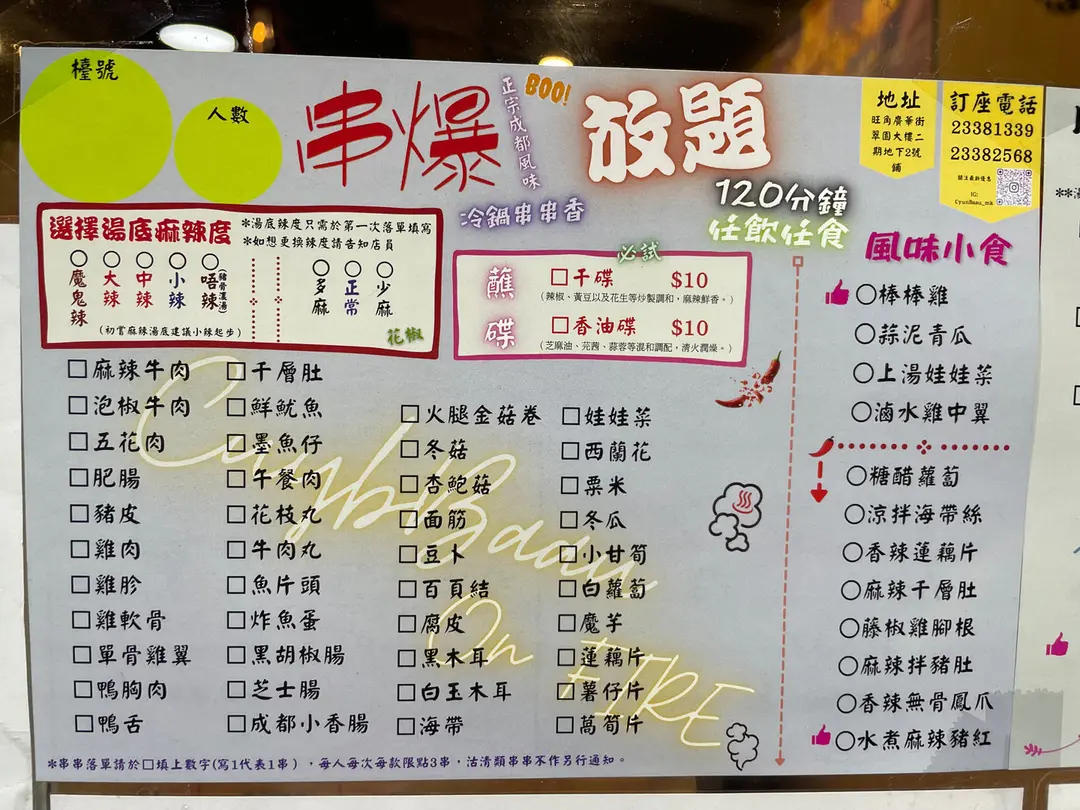 檯號
人數
串爆
正宗成都風味
BOO!
放題
冷鍋串串香
120分鐘
任飲任食
地址
旺角廣華街
翠園大樓二
期地下2號
舖
訂座電話
23381339
23382568
關注最新優惠
IG:
選擇湯底麻辣度
*湯底辣度只需於第一次落單填寫
*如想更換辣度請告知店員
○魔鬼辣
○大辣
○中辣
○小辣
○唔辣(豬骨濃湯)
○多麻
○正常
○少麻
(初嘗麻辣湯底建議小辣起步)
花椒
必試
蘸碟
□干碟 $10
(辣椒、黃豆以及花生等炒製調和，麻辣鮮香。)
□香油碟 $10
(芝麻油、芫茜、蒜蓉等混和調配，清火潤燥。)
□麻辣牛肉
□泡椒牛肉
□五花肉
□肥腸
□豬皮
□雞肉
□雞胗
□雞軟骨
□單骨雞翼
□鴨胸肉
□鴨舌
□千層肚
□鮮魷魚
□墨魚仔
□午餐肉
□花枝丸
□牛肉丸
□魚片頭
□炸魚蛋
□黑胡椒腸
□芝士腸
□成都小香腸
□火腿金菇卷
□冬菇
□杏鮑菇
□面筋
□豆卜
□百頁結
□腐皮
□黑木耳
□白玉木耳
□海帶
□娃娃菜
□西蘭花
□粟米
□冬瓜
□小甘筍
□白蘿蔔
□魔芋
□蓮藕片
□薯仔片
□萵筍片
風味小食
○棒棒雞
○蒜泥青瓜
○上湯娃娃菜
○滷水雞中翼
○糖醋蘿蔔
○涼拌海帶絲
○香辣蓮藕片
○麻辣千層肚
○藤椒雞腳根
○麻辣拌豬肚
○香辣無骨鳳爪
○水煮麻辣豬紅
On FIRE
*串串落單請於□填上數字(寫1代表1串)，每人每次每款限點3串，沽清類串串不作另行通知。